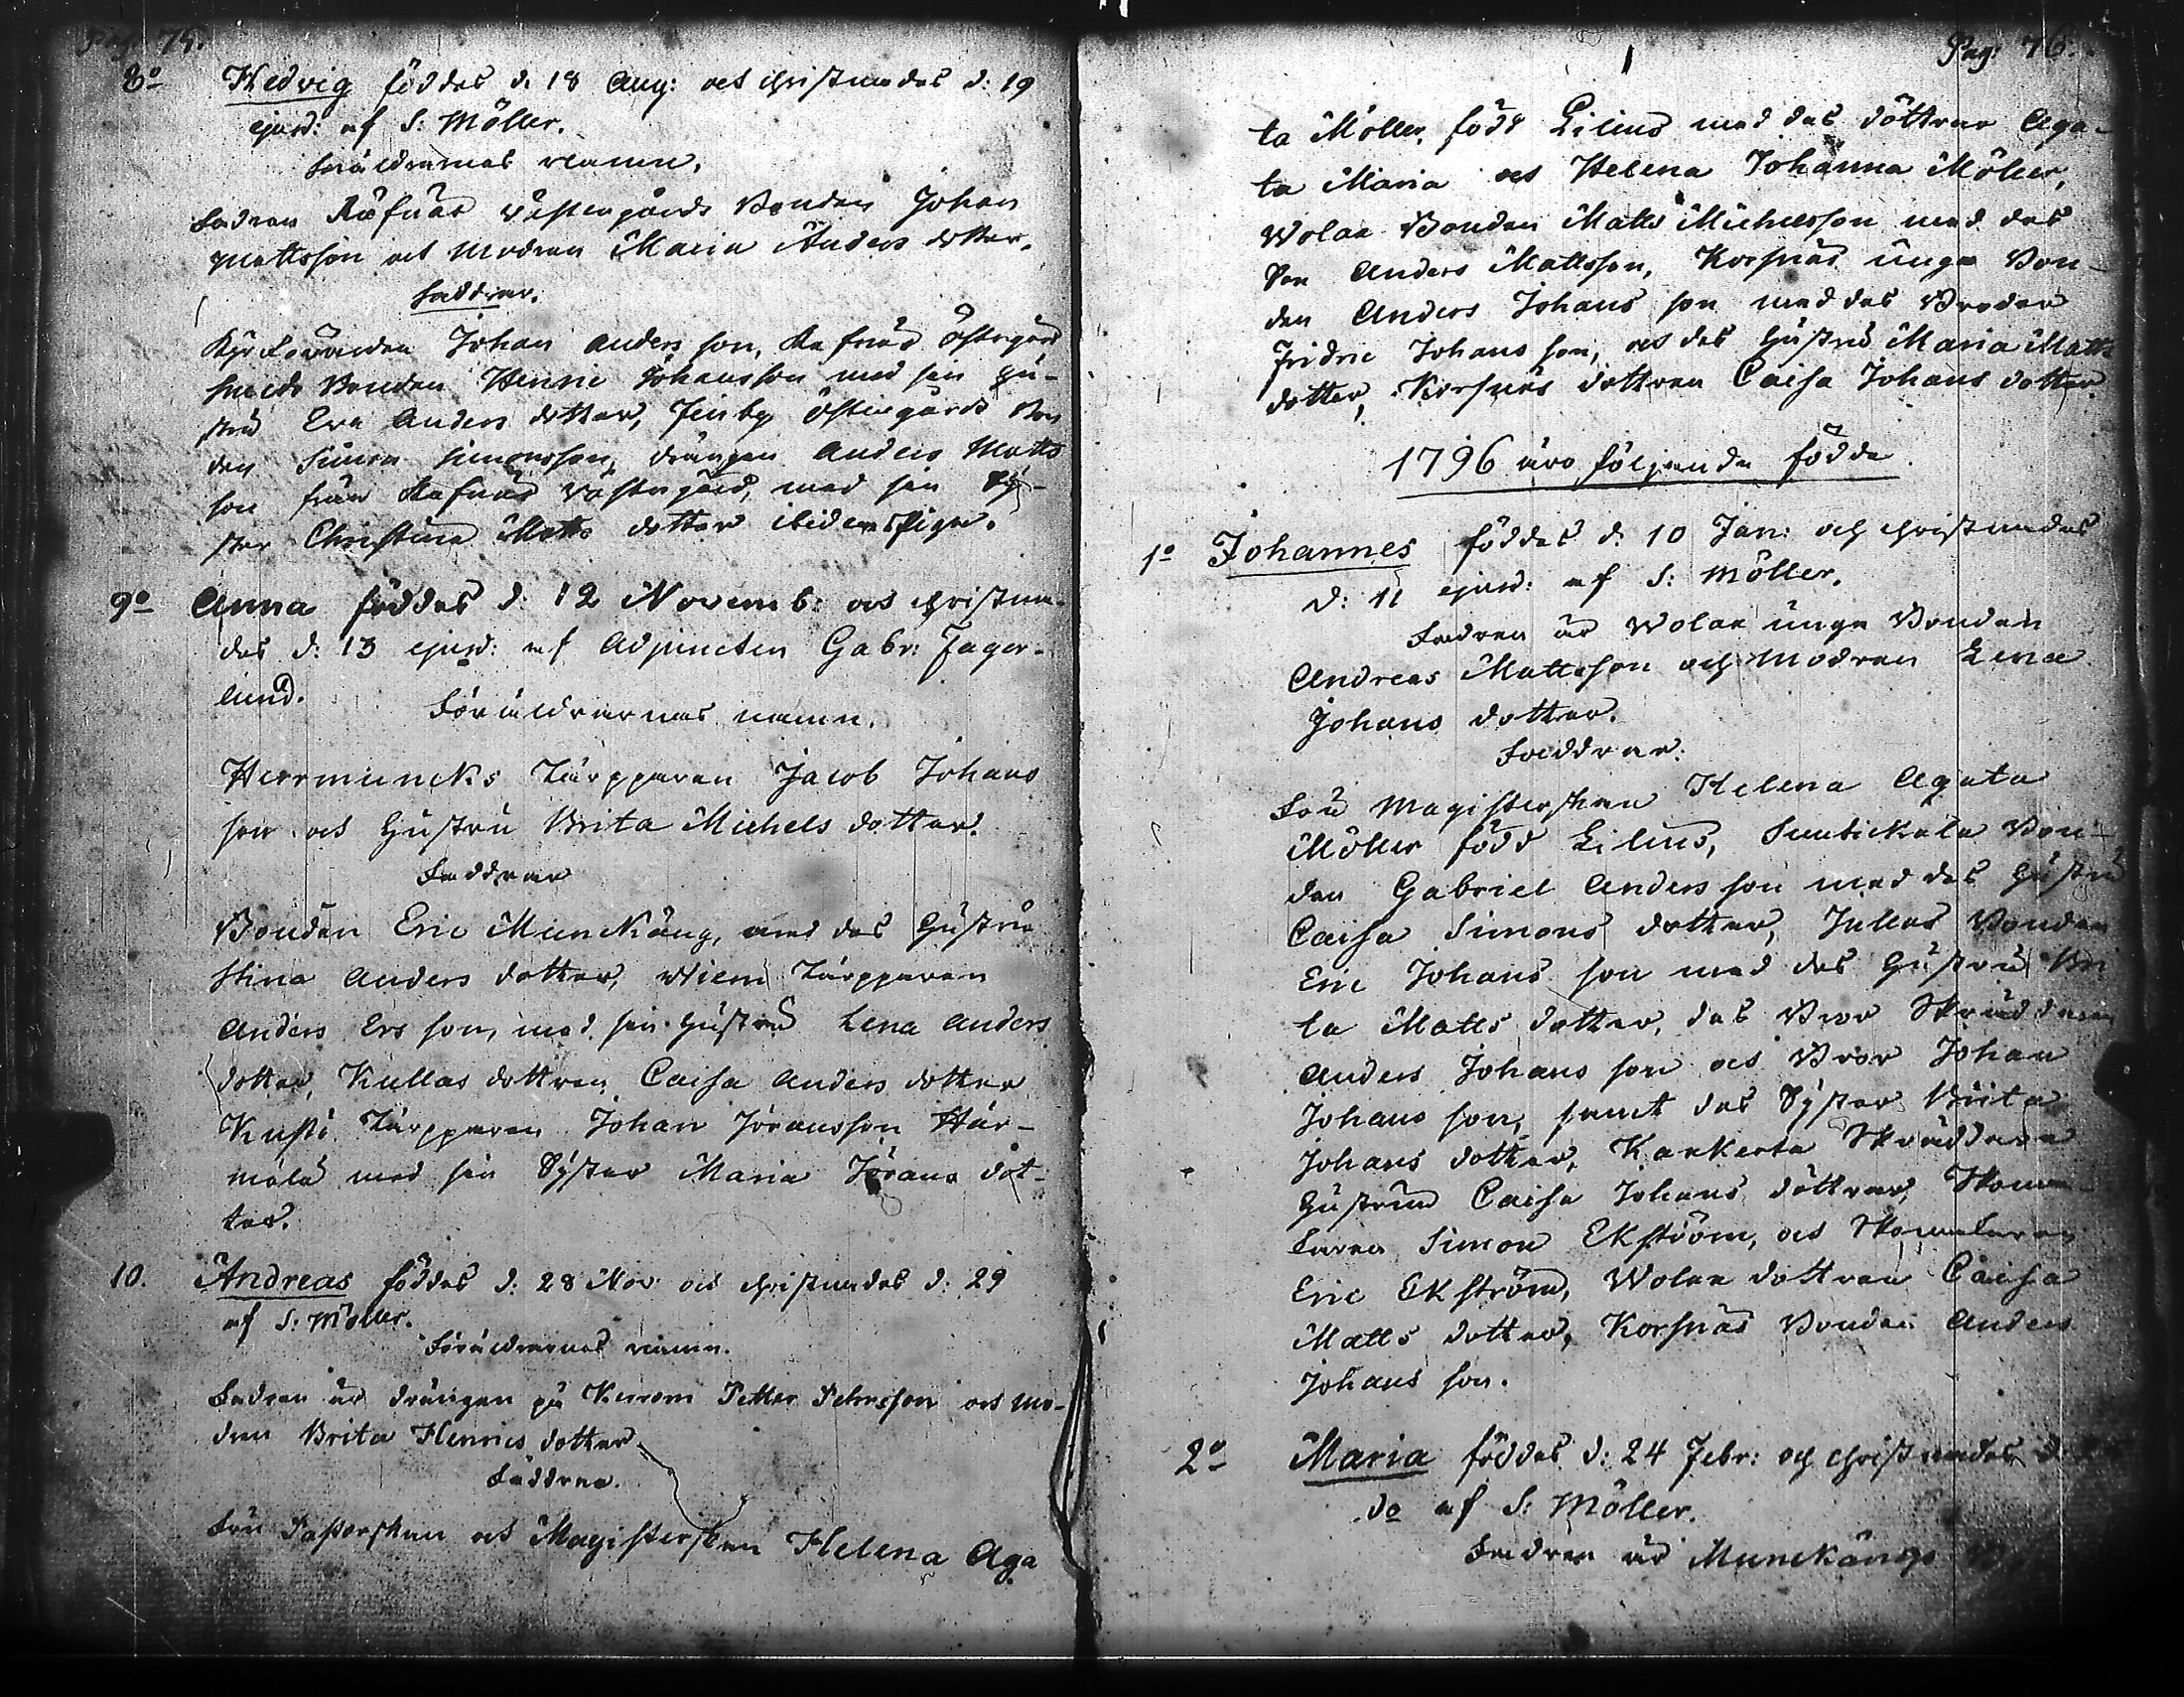 Pag: 75.
8o Hedvig föddes d. 18 Aug: och christnades d: 19
ejusd: af S: Möller.
Föräldrarnes namn.
Fadren Räfnäs västergårds Bonden Johan
Mattsson och Modren Maria Anders dotter.
Faddrar.
Johan Anders son, Rafnäs Östergård
Bonden Henric Johansson med sin hu-
stru Eva Anders dotter, Finby Östergårds Bon
den Simon Simonsson, drängen Anders Matts
son från Rafnäs Västergård, med sin Sÿ-
ster Christina Matts dotter ibidem Piga.
9o Anna föddes d: 12 Novemb: och christna-
des d: 13 ejusd: af Adjuncten Gabr: Fager-
lund.
Föräldrarnas namn.
Herrmuncks Torpparen Jacob Johans
son och Hustru Brita Michels dotter.
Faddrar
Bonden Eric Munckäng, med des Hustru
Stina Anders dotter, Torpparen
Anders Ers son, med sin Hustru Lena Anders
dotter, Kullas dottren Caisa Anders dotter
Torpparen Johan Jöransson Här-
mälä med sin Sÿster Maria Jörans dot-
ter.
10. Andreas föddes d: 28 Nov och christnades d: 29
af S: Möller.
Föräldrarnas namn.
Fadren är drängen på Petter Pehrsson och Mo-
dren Brita Henrics dotter
Faddrar.
Fru Pastorskan och Magisterskan Helena Aga
Pag: 76.
ta Möller, född Lilius med des döttrar Aga-
ta Maria och Helena Johanna Möller,
Wolax Bonden Matts Michelsson med des
Son Anders Mattsson, Korsnäs unga Bon-
den Anders Johans son med des Broder
Fridric Johans son, och des Hustru Maria Matts
dotter, Korsnäs dottren Caisa Johans dotter
1796 äro följande födde.
1o Johannes föddes d. 10 Jan: och christnades
d: 11 ejusd: af S: Möller.
Fadren är Wolax unga Bonden
Andreas Mattsson och Modren Lena
Johans dotter.
Faddrar:
Fru Magisterskan Helena Agata
Möller född Lilius, Bon-
den Gabriel Anders son med des Hustru
Caisa Simons dotter, Jullas Bonden
Eric Johans son med des Hustru Bri
ta Matts dotter, des Bror Skräddaren
Anders Johans son och Bror Johan
Johans son, samt des Sÿster Brita
Johans dotter, Karkerta Skräddare
Hustrun Caisa Johans dotter, Skoma-
karen Simon Ekström, och Skomakaren
Eric Ekström, Wolax dottren Caisa
Matts dotter, Korsnäs Bonden Anders
Johans son.
2o Maria föddes d: 24 Febr: och christnades d
do af S: Möller.
Fadren är Munckängs